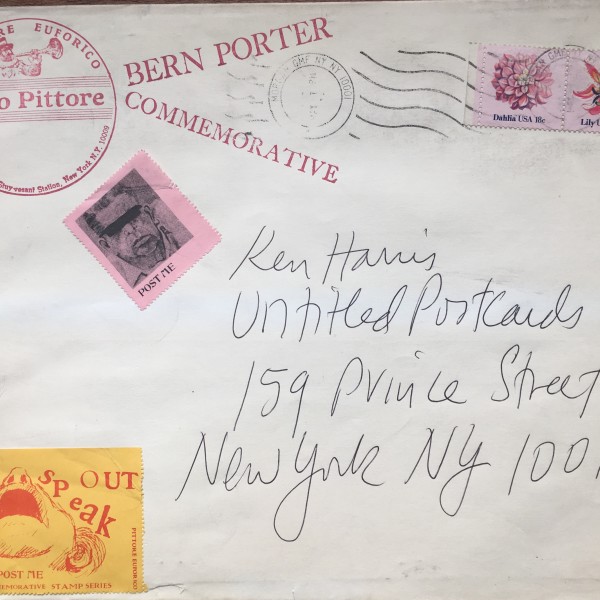 RE EUFORICO
o Pittore
Stuyvesant Station, New York N.Y. 10009
BERN PORTER
COMMEMORATIVE
MORGAN GMF NY NY 10001
Dahlia USA 18c
Lily U
POST ME
Ken Harris
Untitled Postcards
159 Prince Street
New York NY 100
SPEAK OUT
POST ME
EMORATIVE STAMP SERIES
PITTORE EUFORICO